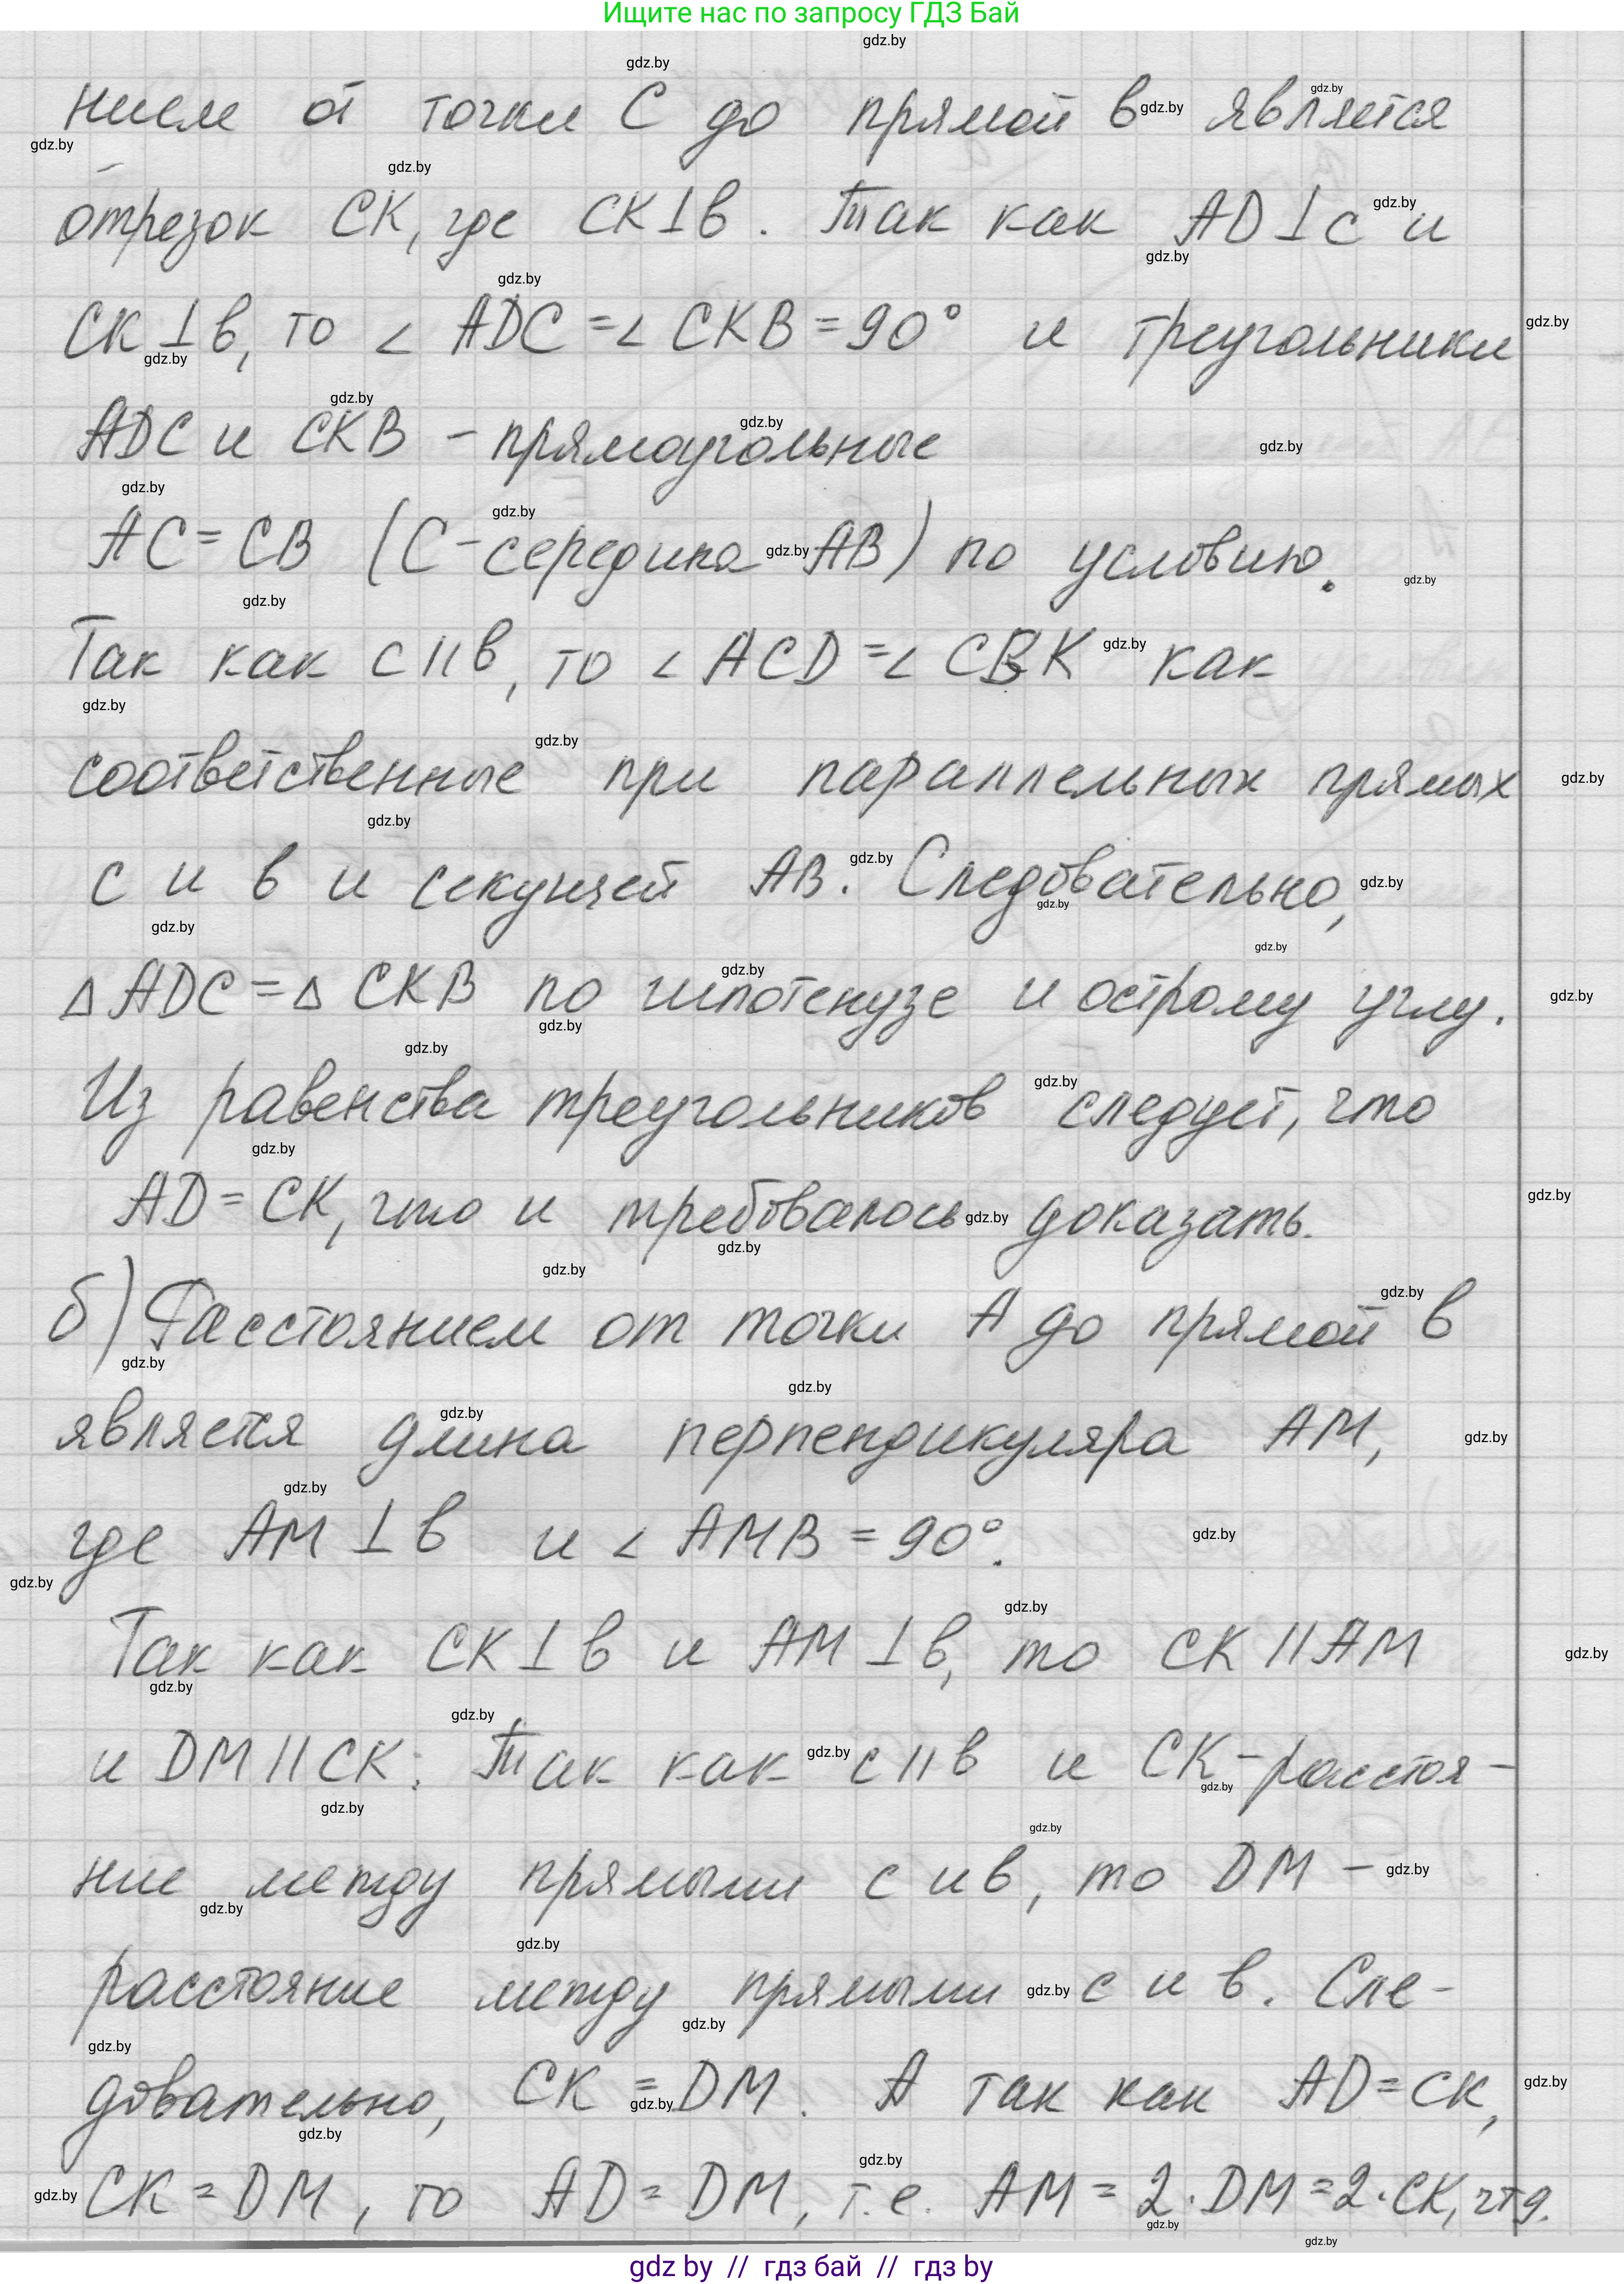 Ищите нас по запросу ГДЗ Бай
нием от точки C до прямой в является
отрезок CK, где CK⊥в. Так как AD⊥c и
CK⊥в, то ∠ADC=∠CKB=90° и треугольники
ADC и CKB - прямоугольные
AC=CB (C-середина AB) по условию.
Так как c||в, то ∠ACD=∠CBK как
соответственные при параллельных прямых
c и в и секущей AB. Следовательно,
△ADC=△CKB по гипотенузе и острому углу.
Из равенства треугольников следует, что
AD=CK, что и требовалось доказать.
б) Расстоянием от точки A до прямой в
является длина перпендикуляра AM,
где AM⊥в и ∠AMB=90°.
Так как CK⊥в и AM⊥в, то CK||AM
и DM||CK. Так как c||в и CK-расстоя-
ние между прямыми c и в, то DM -
расстояние между прямыми c и в. Сле-
довательно, CK=DM. А так как AD=CK,
CK=DM, то AD=DM, т.е. AM=2·DM=2·CK, чтд.
gdz by // гдз бай // гдз by